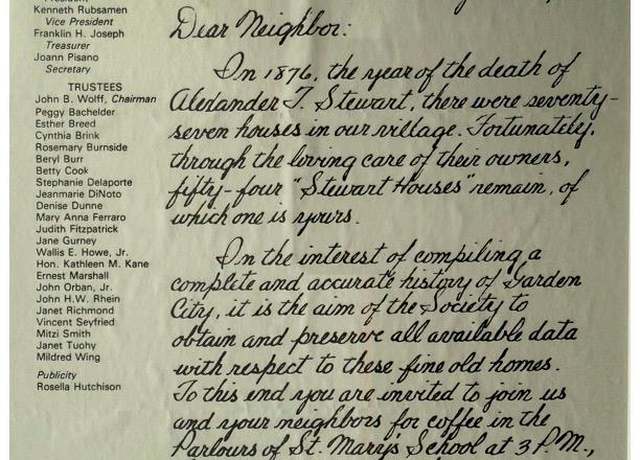 Kenneth Rubsamen
Vice President
Franklin H. Joseph
Treasurer
Joann Pisano
Secretary
TRUSTEES
John B. Wolff, Chairman
Peggy Bachelder
Esther Breed
Cynthia Brink
Rosemary Burnside
Beryl Burr
Betty Cook
Stephanie Delaporte
Jeanmarie DiNoto
Denise Dunne
Mary Anna Ferraro
Judith Fitzpatrick
Jane Gurney
Wallis E. Howe, Jr.
Hon. Kathleen M. Kane
Ernest Marshall
John Orban, Jr.
John H.W. Rhein
Janet Richmond
Vincent Seyfried
Mitzi Smith
Janet Tuohy
Mildred Wing
Publicity
Rosella Hutchison
Dear Neighbor:
In 1876, the year of the death of
Alexander T. Stewart, there were seventy-
seven houses in our village. Fortunately,
through the loving care of their owners,
fifty-four "Stewart Houses" remain, of
which one is yours.
In the interest of compiling a
complete and accurate history of Garden
City, it is the aim of the Society to
obtain and preserve all available data
with respect to these fine old homes.
To this end you are invited to join us
and your neighbors for coffee in the
Parlours of St. Mary's School at 3 P.M.,